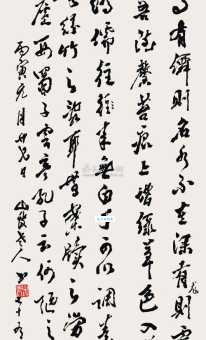 有僊則名水不在深有則龍
吾德馨苔痕上階綠草色入
儒往来無白丁可以調素
絲竹之亂耳無案牘之勞
廬西蜀子雲亭孔子云何陋之
丙寅元月
老人